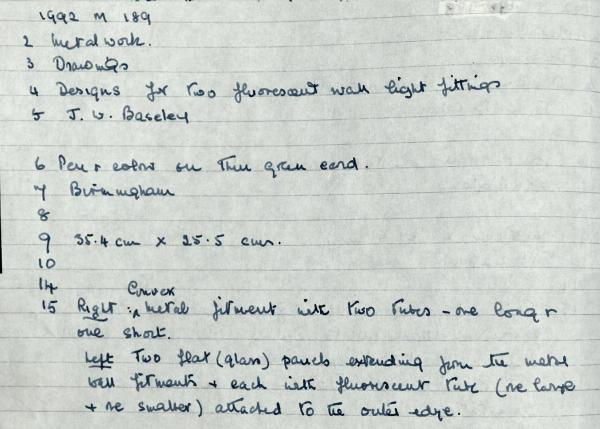 1992 M 189
2 Metalwork.
3 Drawings
4 Designs for two fluorescent wall light fittings
5 J. W. Baseley
6 Pen & colour on thin green card.
7 Birmingham
8
9 35.4 cm x 25.5 cms.
10
14
Convex
15 Right : metal fitment with two tubes - one long &
one short.
Left Two flat (glass) panels extending from the metal
wall fitments & each with fluorescent tube (one large
& one smaller) attached to the outer edge.